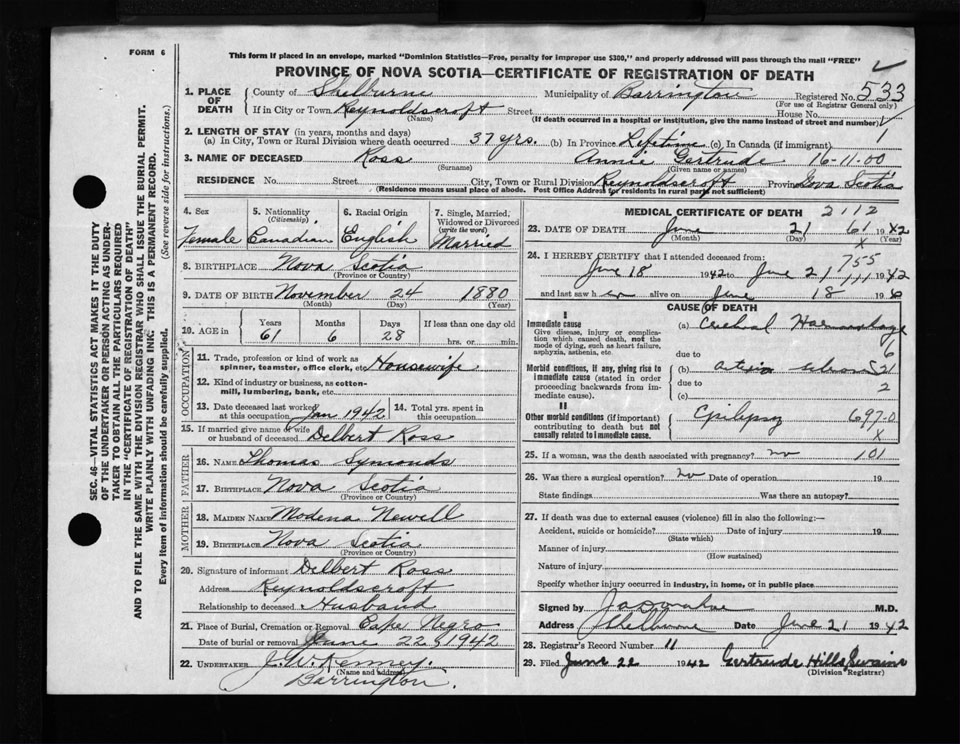 FORM 6
This form if placed in an envelope, marked "Dominion Statistics—Free, penalty for improper use $300," and properly addressed will pass through the mail "FREE"
PROVINCE OF NOVA SCOTIA—CERTIFICATE OF REGISTRATION OF DEATH
SEC. 46—VITAL STATISTICS ACT MAKES IT THE DUTY
OF THE UNDERTAKER OR PERSON ACTING AS UNDER-
TAKER TO OBTAIN ALL THE PARTICULARS REQUIRED
IN THE "CERTIFICATE OF REGISTRATION OF DEATH"
AND TO FILE THE SAME WITH THE DIVISION REGISTRAR WHO SHALL ISSUE THE BURIAL PERMIT.
WRITE PLAINLY WITH UNFADING INK. THIS IS A PERMANENT RECORD.
Every item of information should be carefully supplied. (See reverse side for instructions.)
1. PLACE OF DEATH
County of Shelburne Municipality of Barrington Registered No. 533
(For use of Registrar General only)
If in City or Town Reynoldscroft Street House No.
(Name) (If death occurred in a hospital or institution, give the name instead of street and number)
2. LENGTH OF STAY (in years, months and days)
(a) In City, Town or Rural Division where death occurred 37 yrs. (b) In Province Lifetime (c) In Canada (if immigrant) 1
3. NAME OF DECEASED Ross Annie Gertrude 16-11-00
(Surname) (Given name or names)
RESIDENCE No. Street City, Town or Rural Division Reynoldscroft Province Nova Scotia
(Residence means usual place of abode. Post Office Address for residents in rural parts not sufficient)
4. Sex 5. Nationality (Citizenship) 6. Racial Origin 7. Single, Married, Widowed or Divorced (write the word)
Female Canadian English Married
8. BIRTHPLACE Nova Scotia
(Province or Country)
9. DATE OF BIRTH November 24 1880
(Month) (Day) (Year)
10. AGE in Years Months Days If less than one day old
61 6 28 hrs. or min.
OCCUPATION
11. Trade, profession or kind of work as
spinner, teamster, office clerk, etc. Housewife
12. Kind of industry or business, as cotton-
mill, lumbering, bank, etc.
13. Date deceased last worked
at this occupation Jan 1942 14. Total yrs. spent in this occupation
15. If married give name of wife
or husband of deceased Delbert Ross
FATHER
16. NAME Thomas Symonds
17. BIRTHPLACE Nova Scotia
(Province or Country)
MOTHER
18. MAIDEN NAME Modena Newell
19. BIRTHPLACE Nova Scotia
(Province or Country)
20. Signature of informant Delbert Ross
Address Reynoldscroft
Relationship to deceased Husband
21. Place of Burial, Cremation or Removal Cape Negro
Date of burial or removal June 22, 1942
22. UNDERTAKER J. W. Kenney.
(Name and address)
Barrington.
MEDICAL CERTIFICATE OF DEATH 2112
23. DATE OF DEATH June 21 61 1942
(Month) (Day) x (Year)
24. I HEREBY CERTIFY that I attended deceased from: 755
June 18 1942 to June 21 1942
and last saw h alive on June 18 19
CAUSE OF DEATH
I
Immediate cause
Give disease, injury or complication which caused death, not the mode of dying, such as heart failure, asphyxia, asthenia, etc.
(a) Cerebral Haemorrhage
due to 6
Morbid conditions, if any, giving rise to immediate cause (stated in order proceeding backwards from immediate cause).
(b) 21
due to 2
(c)
II
Other morbid conditions (if important) contributing to death but not causally related to immediate cause.
Epilepsy 697-0
x
25. If a woman, was the death associated with pregnancy? no 101
26. Was there a surgical operation? no Date of operation 19
State findings Was there an autopsy?
27. If death was due to external causes (violence) fill in also the following:—
Accident, suicide or homicide? Date of injury 19
(State which)
Manner of injury
(How sustained)
Nature of injury
Specify whether injury occurred in industry, in home, or in public place
Signed by M.D.
Address Shelburne Date June 21 1942
28. Registrar's Record Number 11
29. Filed June 22 1942 Gertrude Hills Swaine
(Division Registrar)